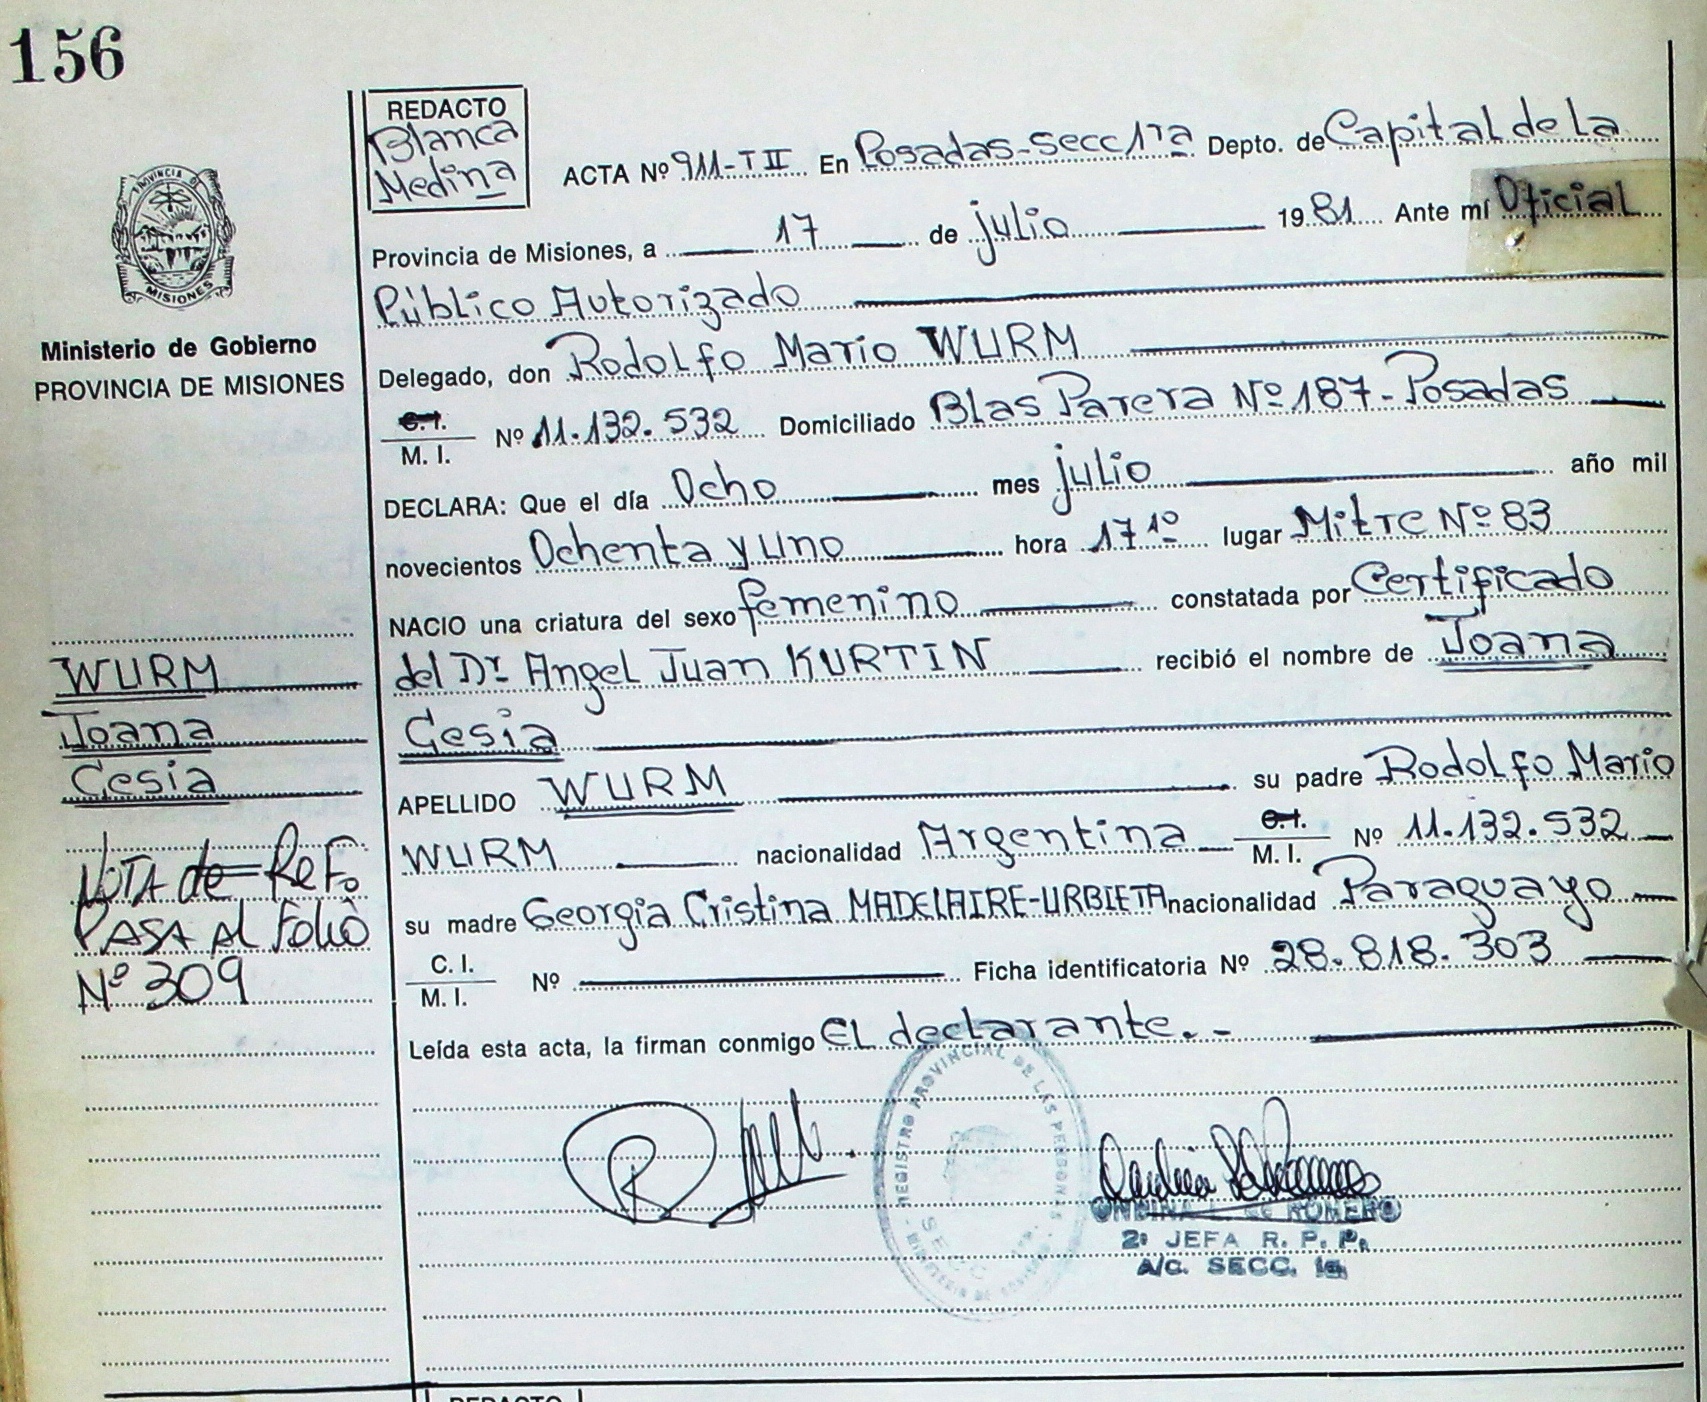 156
REDACTO
Blanca
Medina
ACTA Nº 911-T II En Posadas-Secc 1ra Depto. de Capital de La
Provincia de Misiones, a 17 de julio 1981 Ante mí Oficial
Público Autorizado
Delegado, don Rodolfo Mario WURM
C.I. M. I. Nº 11.132.532 Domiciliado Blas Parera Nº 187-Posadas
DECLARA: Que el día Ocho mes julio año mil
novecientos Ochenta y uno hora 17 10 lugar Mitre Nº 83
NACIO una criatura del sexo femenino constatada por Certificado
del Dr. Angel Juan KURTIN recibió el nombre de Joana
Cesia
APELLIDO WURM su padre Rodolfo Mario
WURM nacionalidad Argentina C.I. M. I. Nº 11.132.532
su madre Georgia Cristina MADELAIRE-URBIETA nacionalidad Paraguayo
C. I. M. I. Nº Ficha identificatoria Nº 28.818.303
Leída esta acta, la firman conmigo EL declarante.-
PROVINCIA D
MISIONES
Ministerio de Gobierno
PROVINCIA DE MISIONES
WURM
Joana
Cesia
NOTA de ReF.
PASA AL Folio
Nº 309
REGISTRO PROVINCIAL DE LAS PERSONAS
SECC
ROMERO
2º JEFA R. P. P.
A/C. SECC. 1a.
REDACTO